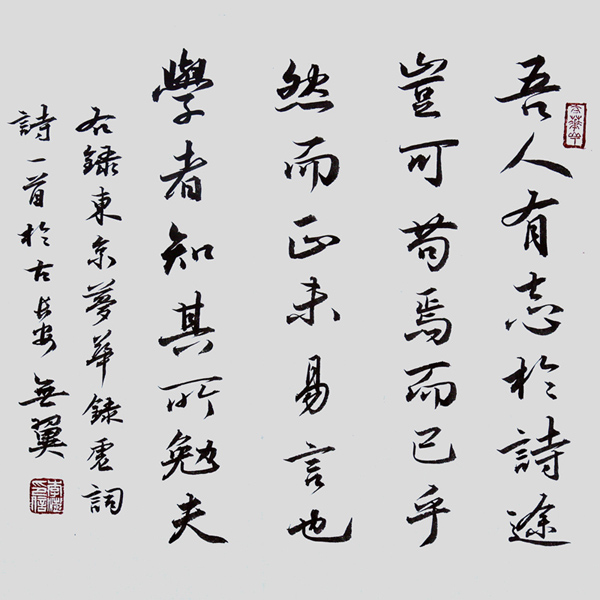 吾人有志於詩途
豈可苟焉而已乎
然而正未易言也
學者知其所勉夫
右錄東京夢華錄虛詞
詩一首於古長安 無翼